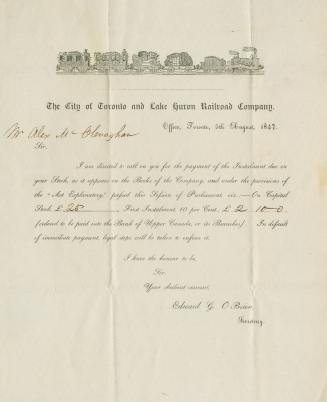 The City of Toronto and Lake Huron Railroad Company.
Office, Toronto, 5th August, 1847.
Mr Alex Mc Clenaghan
Sir,
I am directed to call on you for the payment of the Instalment due on
your Stock, as it appears on the Books of the Company, and under the provisions of
the "Act Explanatory" passed this Session of Parliament viz.—On Capital
Stock £ 25 First Instalment 10 per Cent. £ 2 10-0
(ordered to be paid into the Bank of Upper Canada, or its Branches). In default
of immediate payment, legal steps will be taken to enforce it.
I have the honour to be,
Sir,
Your obedient servant,
Edward G. O'Brien,
Secretary.